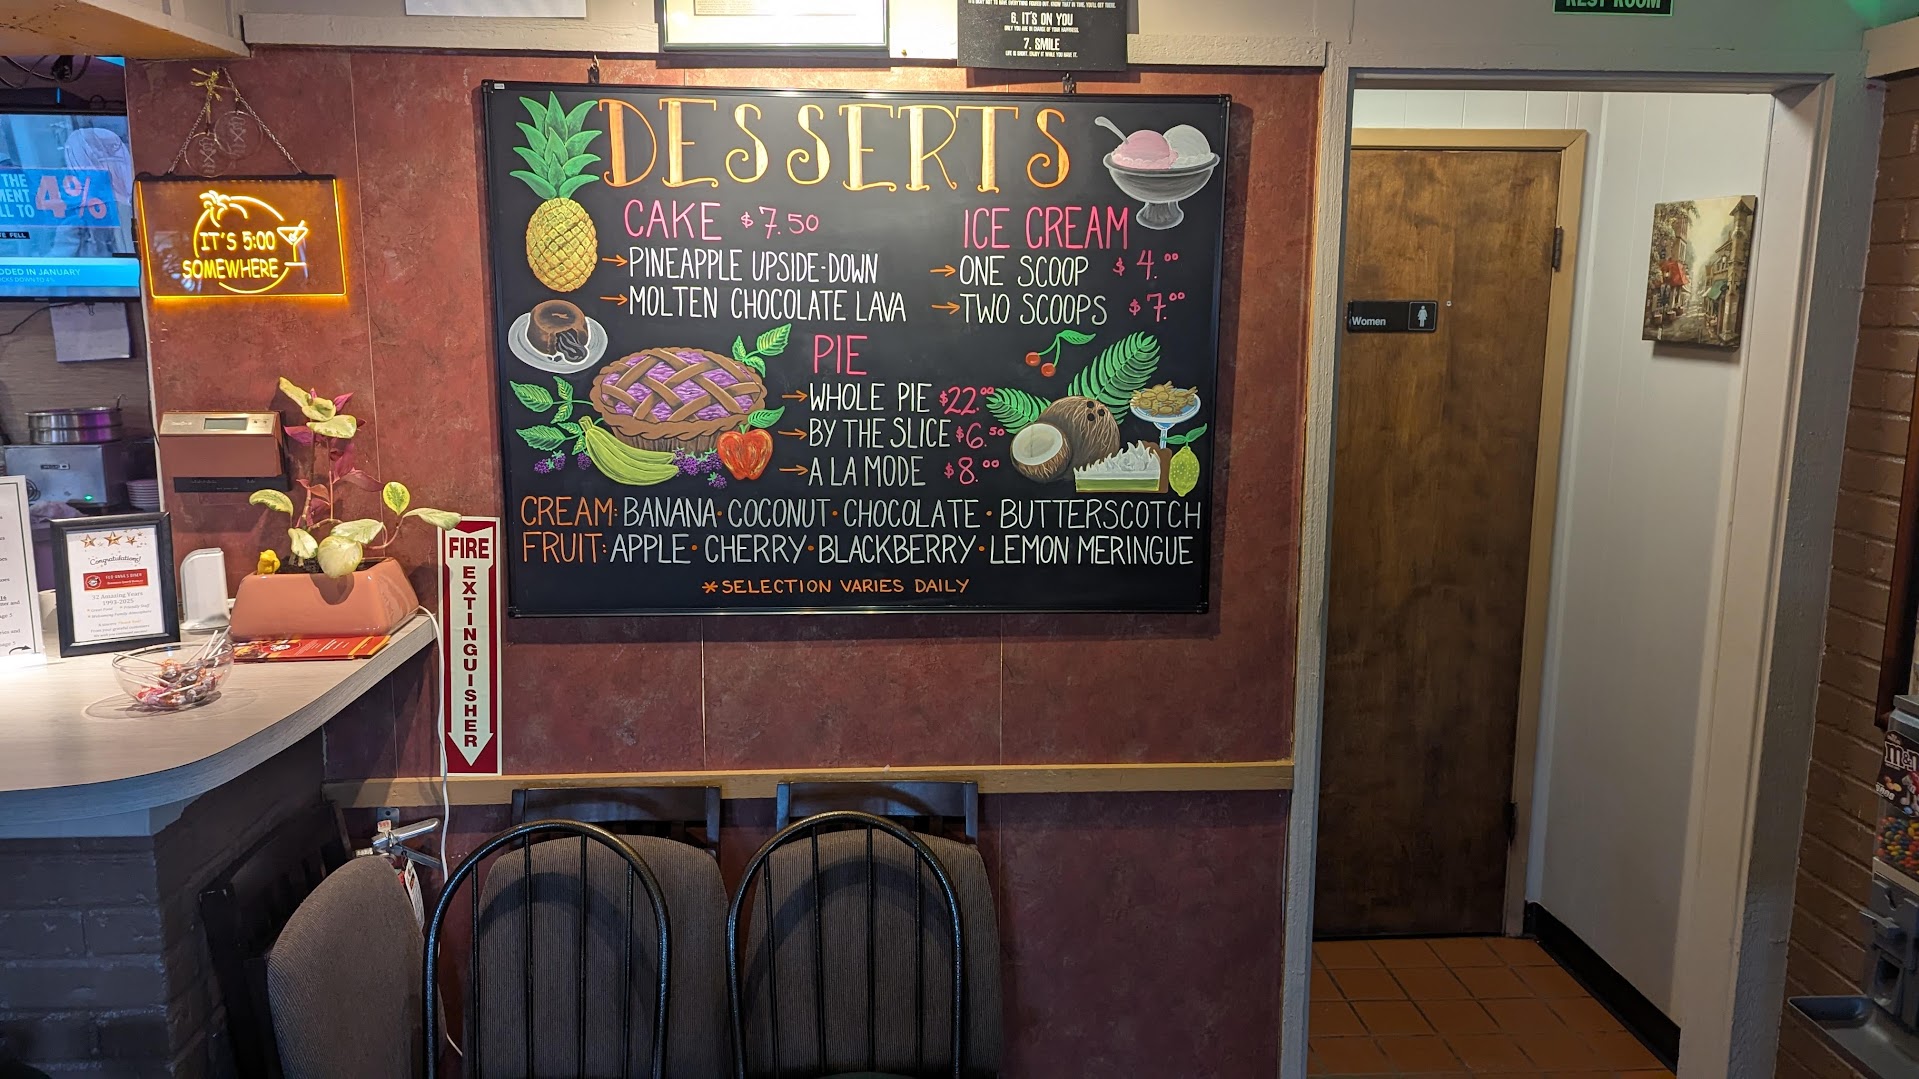 REST ROOM
6. IT'S ON YOU
ONLY YOU ARE IN CHARGE OF YOUR HAPPINESS.
7. SMILE
LIFE IS SHORT. ENJOY IT WHILE YOU HAVE IT.
DESSERTS
CAKE $7.50
→PINEAPPLE UPSIDE-DOWN
→MOLTEN CHOCOLATE LAVA
ICE CREAM
→ONE SCOOP $4.00
→TWO SCOOPS $7.00
PIE
→WHOLE PIE $22.00
→BY THE SLICE $6.50
→A LA MODE $8.00
CREAM: BANANA • COCONUT • CHOCOLATE • BUTTERSCOTCH
FRUIT: APPLE • CHERRY • BLACKBERRY • LEMON MERINGUE
*SELECTION VARIES DAILY
THE
4%
LL TO
DDED IN JANUARY
IT'S 5:00
SOMEWHERE
Women
FIRE
EXTINGUISHER
Congratulations!
32 Amazing Years
1993-2025
M&M